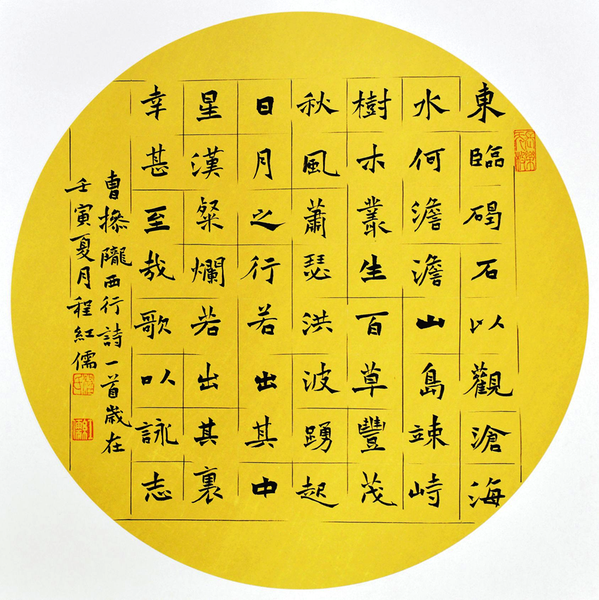 東臨碣石以觀滄海
水何澹澹山島竦峙
樹木叢生百草豐茂
秋風蕭瑟洪波踴起
日月之行若出其中
星漢粲爛若出其裏
幸甚至哉歌以詠志
曹操隴西行詩一首歲在
壬寅夏月程紅儒